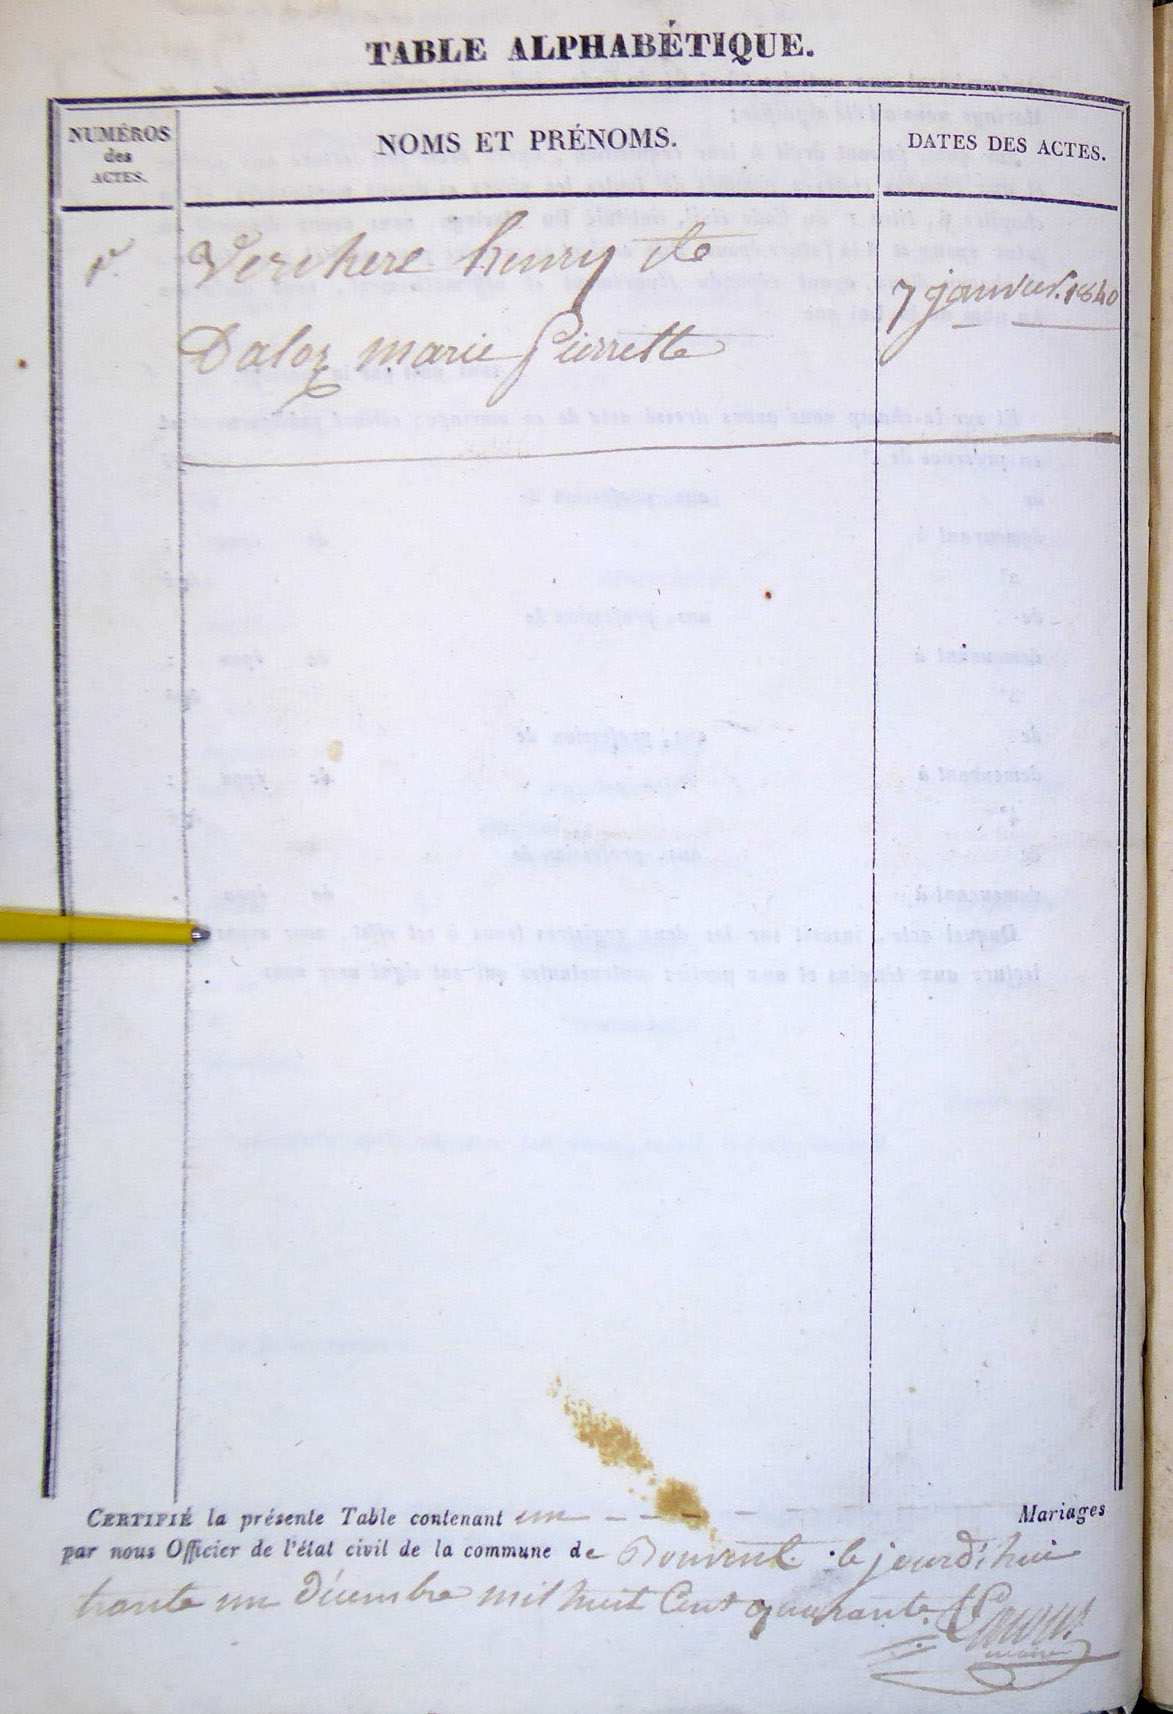 TABLE ALPHABÉTIQUE.
NUMÉROS
des
ACTES.
NOMS ET PRÉNOMS.
DATES DES ACTES.
1er Verchere henry et
7 janvier 1840
Daloz marie Pierrette
CERTIFIÉ la présente Table contenant un Mariages
par nous Officier de l'état civil de la commune de Bouvent le jourd'hui
trante un décembre mil huit Cent quarante
maire